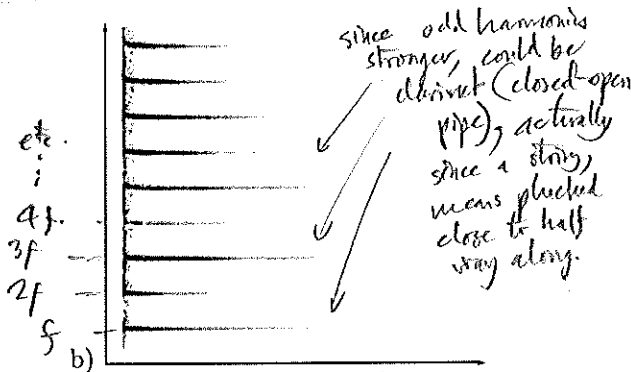 since odd harmonics
stronger, could be
clarinet (closed-open
pipe), actually
since a string,
means plucked
close to half
way along.
etc.
4f.
3f
2f
f
b)